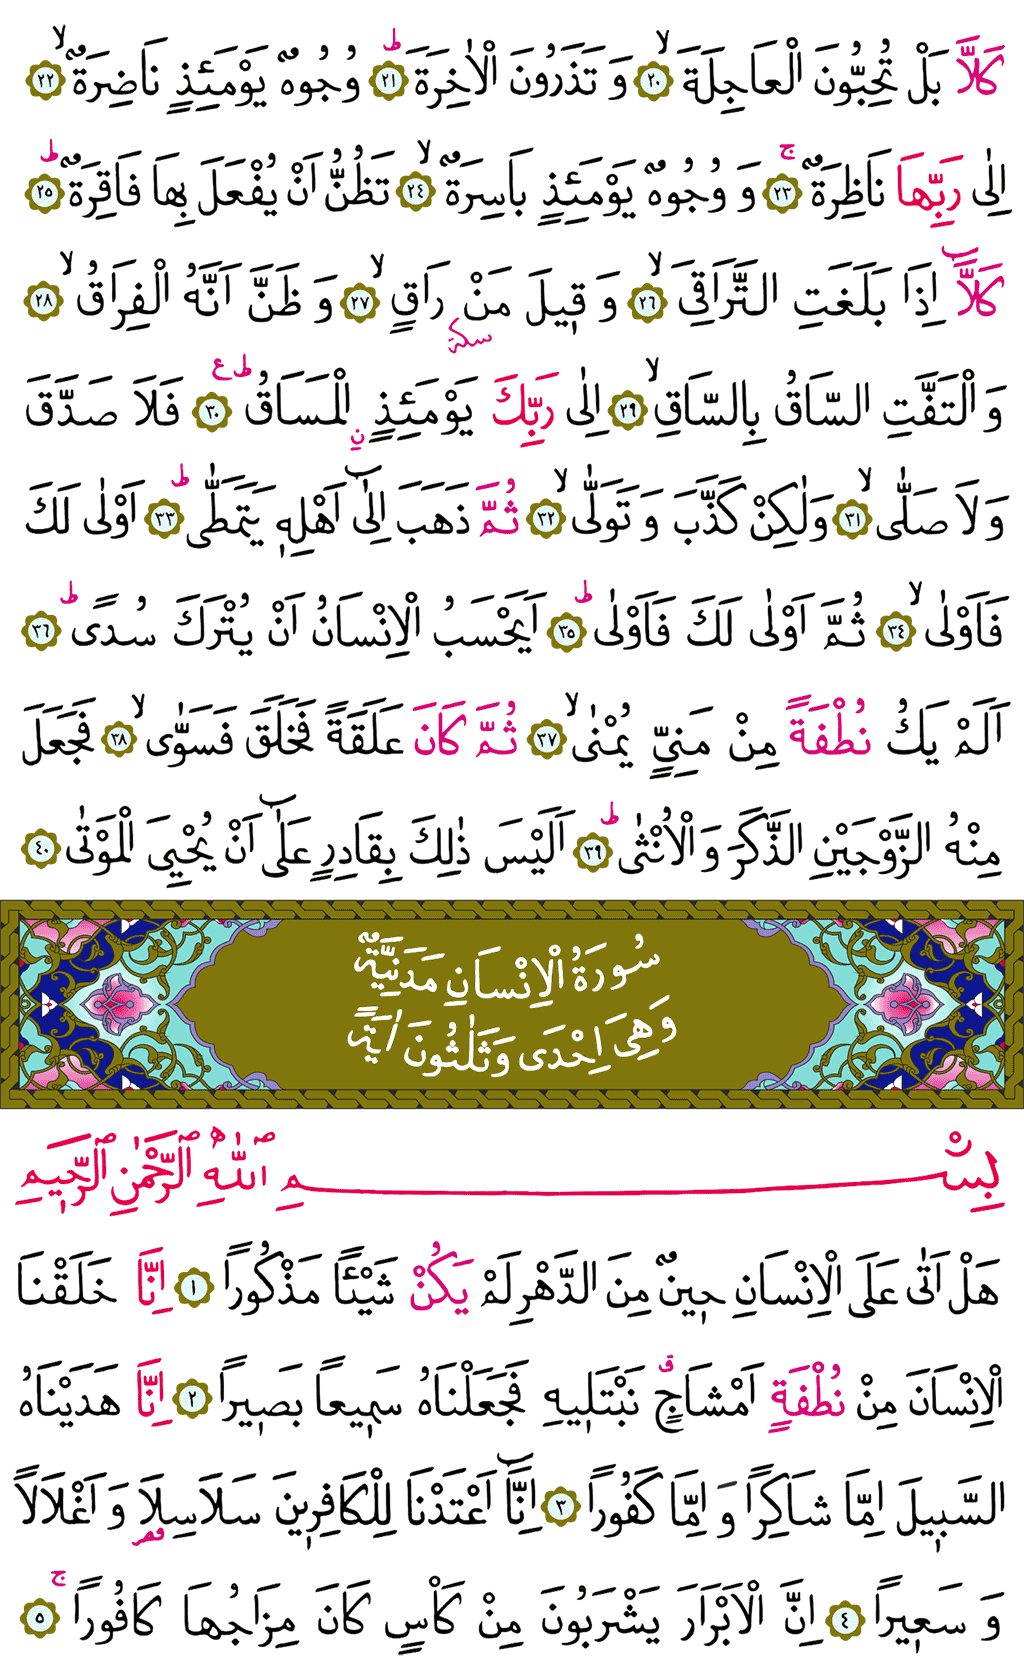 كَلَّا بَلْ تُحِبُّونَ الْعَاجِلَةَۙ ﴿٢٠﴾ وَ تَذَرُونَ الْاٰخِرَةَۜ ﴿٢١﴾ وُجُوهٌ يَوْمَئِذٍ نَاضِرَةٌۙ ﴿٢٢﴾
اِلٰى رَبِّهَا نَاظِرَةٌۚ ﴿٢٣﴾ وَ وُجُوهٌ يَوْمَئِذٍ بَاسِرَةٌۙ ﴿٢٤﴾ تَظُنُّ اَنْ يُفْعَلَ بِهَا فَاقِرَةٌۜ ﴿٢٥﴾
كَلَّٓا اِذَا بَلَغَتِ التَّرَاقِيَۙ ﴿٢٦﴾ وَ ق۪يلَ مَنْ سكتة رَاقٍۙ ﴿٢٧﴾ وَ ظَنَّ اَنَّهُ الْفِرَاقُۙ ﴿٢٨﴾
وَ الْتَفَّتِ السَّاقُ بِالسَّاقِۙ ﴿٢٩﴾ اِلٰى رَبِّكَ يَوْمَئِذٍ نِ الْمَسَاقُ ط ع ﴿٣٠﴾ فَلَا صَدَّقَ
وَ لَا صَلّٰىۙ ﴿٣١﴾ وَلٰكِنْ كَذَّبَ وَ تَوَلّٰىۙ ﴿٣٢﴾ ثُمَّ ذَهَبَ اِلٰٓى اَهْلِه۪ يَتَمَطّٰىۜ ﴿٣٣﴾ اَوْلٰى لَكَ
فَاَوْلٰىۙ ﴿٣٤﴾ ثُمَّ اَوْلٰى لَكَ فَاَوْلٰىۜ ﴿٣٥﴾ اَيَحْسَبُ الْاِنْسَانُ اَنْ يُتْرَكَ سُدًىۜ ﴿٣٦﴾
اَلَمْ يَكُ نُطْفَةً مِنْ مَنِيٍّ يُمْنٰىۙ ﴿٣٧﴾ ثُمَّ كَانَ عَلَقَةً فَخَلَقَ فَسَوّٰىۙ ﴿٣٨﴾ فَجَعَلَ
مِنْهُ الزَّوْجَيْنِ الذَّكَرَ وَالْاُنْثٰىۜ ﴿٣٩﴾ اَلَيْسَ ذٰلِكَ بِقَادِرٍ عَلٰٓى اَنْ يُحْيِيَ الْمَوْتٰى ﴿٤٠﴾
سُورَةُ الْاِنْسَانِ مَدَنِيَّةٌ
وَهِيَ اِحْدَى وَثَلٰثُونَ اٰيَةً
بِسْمِ اللّٰهِ الرَّحْمٰنِ الرَّح۪يمِ
هَلْ اَتٰى عَلَى الْاِنْسَانِ ح۪ينٌ مِنَ الدَّهْرِ لَمْ يَكُنْ شَيْـًٔا مَذْكُورًا ﴿١﴾ اِنَّا خَلَقْنَا
الْاِنْسَانَ مِنْ نُطْفَةٍ اَمْشَاجٍۗ نَبْتَل۪يهِ فَجَعَلْنَاهُ سَم۪يعًا بَص۪يرًا ﴿٢﴾ اِنَّا هَدَيْنَاهُ
السَّب۪يلَ اِمَّا شَاكِرًا وَ اِمَّا كَفُورًا ﴿٣﴾ اِنَّٓا اَعْتَدْنَا لِلْكَافِر۪ينَ سَلَاسِلَا قصر وَ اَغْلَالًا
وَ سَع۪يرًا ﴿٤﴾ اِنَّ الْاَبْرَارَ يَشْرَبُونَ مِنْ كَأْسٍ كَانَ مِزَاجُهَا كَافُورًاۚ ﴿٥﴾